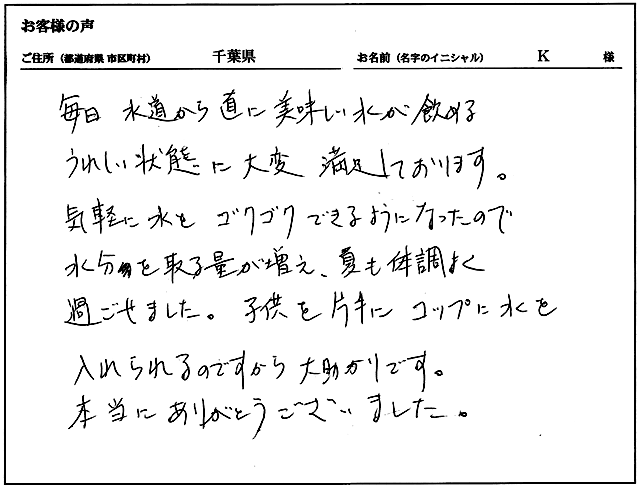 お客様の声
ご住所（都道府県 市区町村） 千葉県 お名前（名字のイニシャル） K 様
毎日 水道から直に美味しい水が飲める
うれしい状態に大変 満足しております。
気軽に水を ゴクゴクできるようになったので
水分を取る量が増え、夏も体調よく
過ごせました。子供を片手に コップに水を
入れられるのですから大助かりです。
本当にありがとうございました。